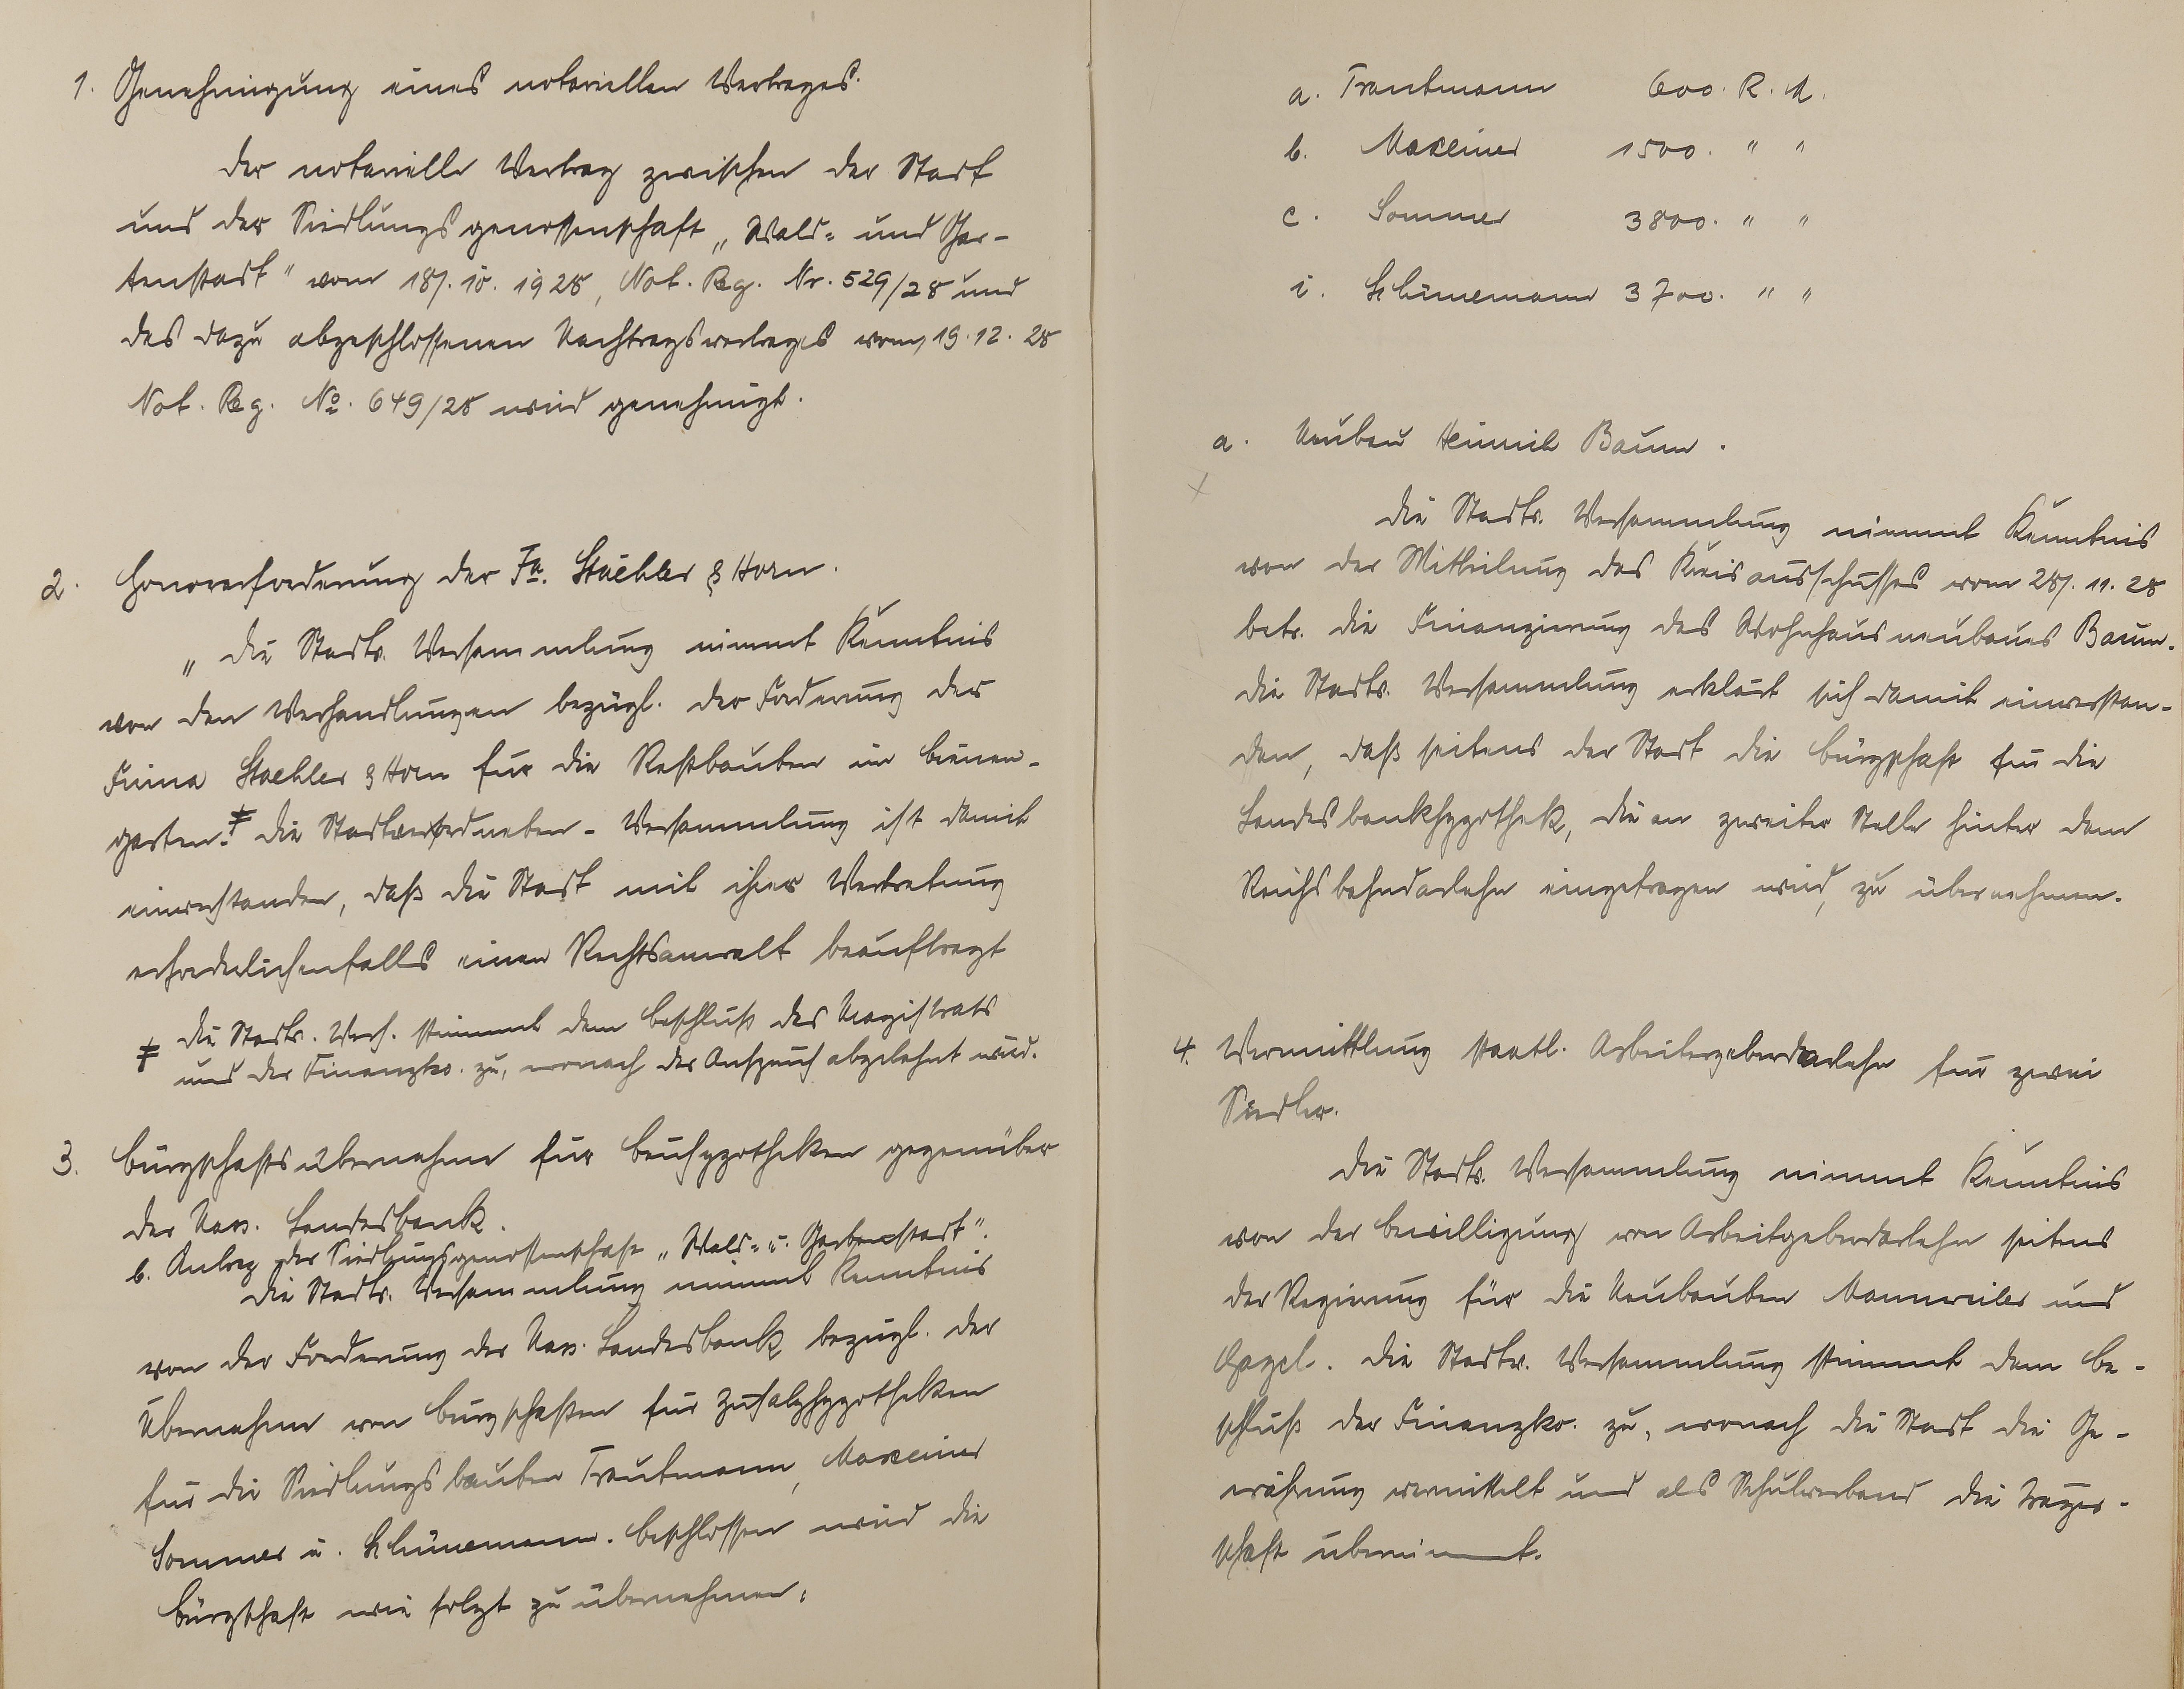 1. Genehmigung eines notariellen Vertrages.
Der notarielle Vertrag zwischen der Stadt
und der Siedlungsgenossenschaft „Wald= und Gar-
tenstadt" vom 18/. 10. 1928, Not. Reg. Nr. 529/28 und
des dazu abgeschlossenen Nachtragsvertrages vom 19. 12. 28
Not. Reg. No. 649/28 wird genehmigt.
2. Honorarforderung der Fa. Staehler & Horn.
„Die Stadtv. Versammlung nimmt Kenntnis
von den Verhandlungen bezügl. der Forderung der
Firma Staehler & Horn für die Restbauten im Bienen-
garten. ≠ Die Stadtverordneten-Versammlung ist damit
einverstanden, daß die Stadt mit ihrer Vertretung
erforderlichenfalls einen Rechtsanwalt beauftragt
≠ Die Stadtv. Vers. stimmt dem Beschluß des Magistrats
und der Finanzko. zu, wonach der Anspruch abgelehnt wird.
3. Bürgschaftsübernahme für Bauhypotheken gegenüber
der Nass. Landesbank.
b. Antrag der Siedlungsgenossenschaft „Wald= u. Gartenstadt".
Die Stadtv. Versammlung nimmt Kenntnis
von der Forderung der Nass. Landesbank bezügl. der
Übernahme von Bürgschaften für Zusatzhypotheken
für die Siedlungsbauten Trautmann, Maxeiner
Sommer u. Schünemann. Beschlossen wird die
Bürgschaft wie folgt zu übernehmen:
a. Trautmann 600. R. M.
b. Maxeiner 1500. " "
c. Sommer 3800. " "
i. Schünemann 3700. " "
a. Neubau Heinrich Baum.
Die Stadtv. Versammlung nimmt Kenntnis
von der Mitteilung des Kreisausschusses vom 28/. 11. 28
betr. die Finanzierung des Wohnhausneubaues Baum.
Die Stadtv. Versammlung erklärt sich damit einverstan-
den, daß seitens der Stadt die Bürgschaft für die
Landesbankhypothek, die an zweiter Stelle hinter dem
Reichsbahndarlehn eingetragen wird, zu übernehmen.
4. Vermittlung staatl. Arbeitergeberdarlehn für zwei
Siedler.
Die Stadtv. Versammlung nimmt Kenntnis
von der Bewilligung von Arbeitgeberdarlehn seitens
der Regierung für die Neubauten Mannweiler und
Hagel. Die Stadtv. Versammlung stimmt dem Be-
schluß der Finanzko. zu, wonach die Stadt die Ge-
währung vermittelt und als Schulverband die Träger-
schaft übernimmt.